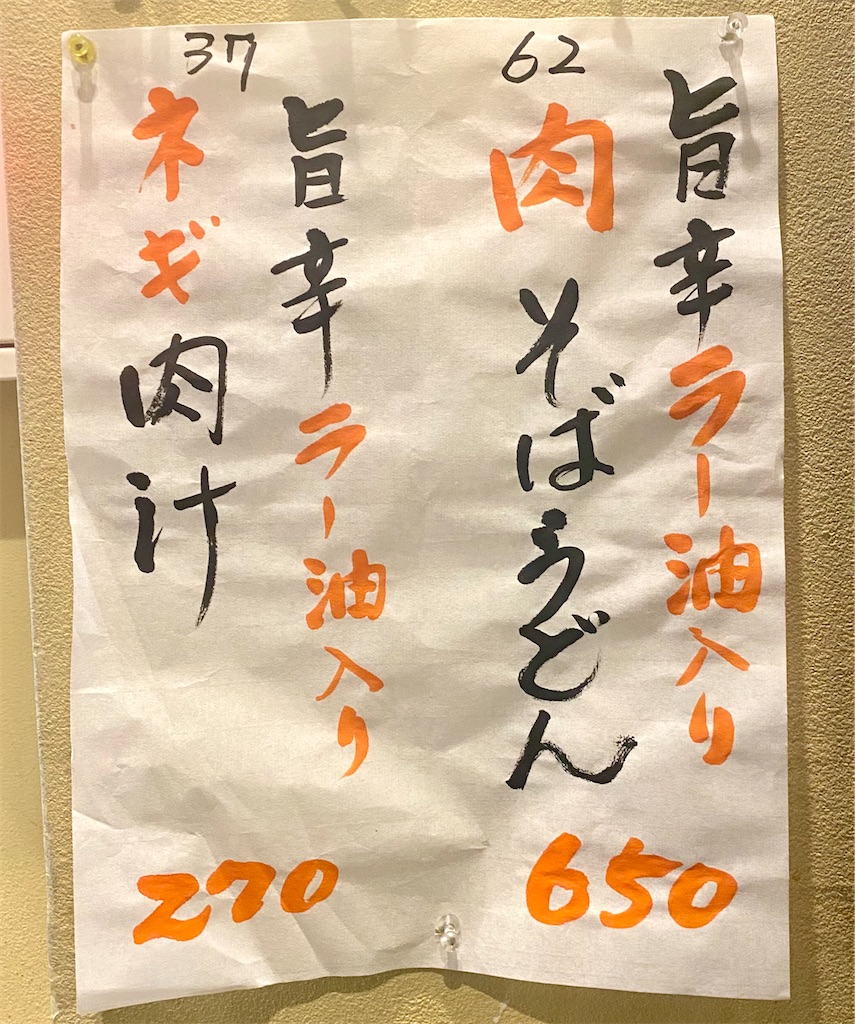 62
旨辛ラー油入り
肉そばうどん
650
37
旨辛ラー油入り
ネギ肉汁
270